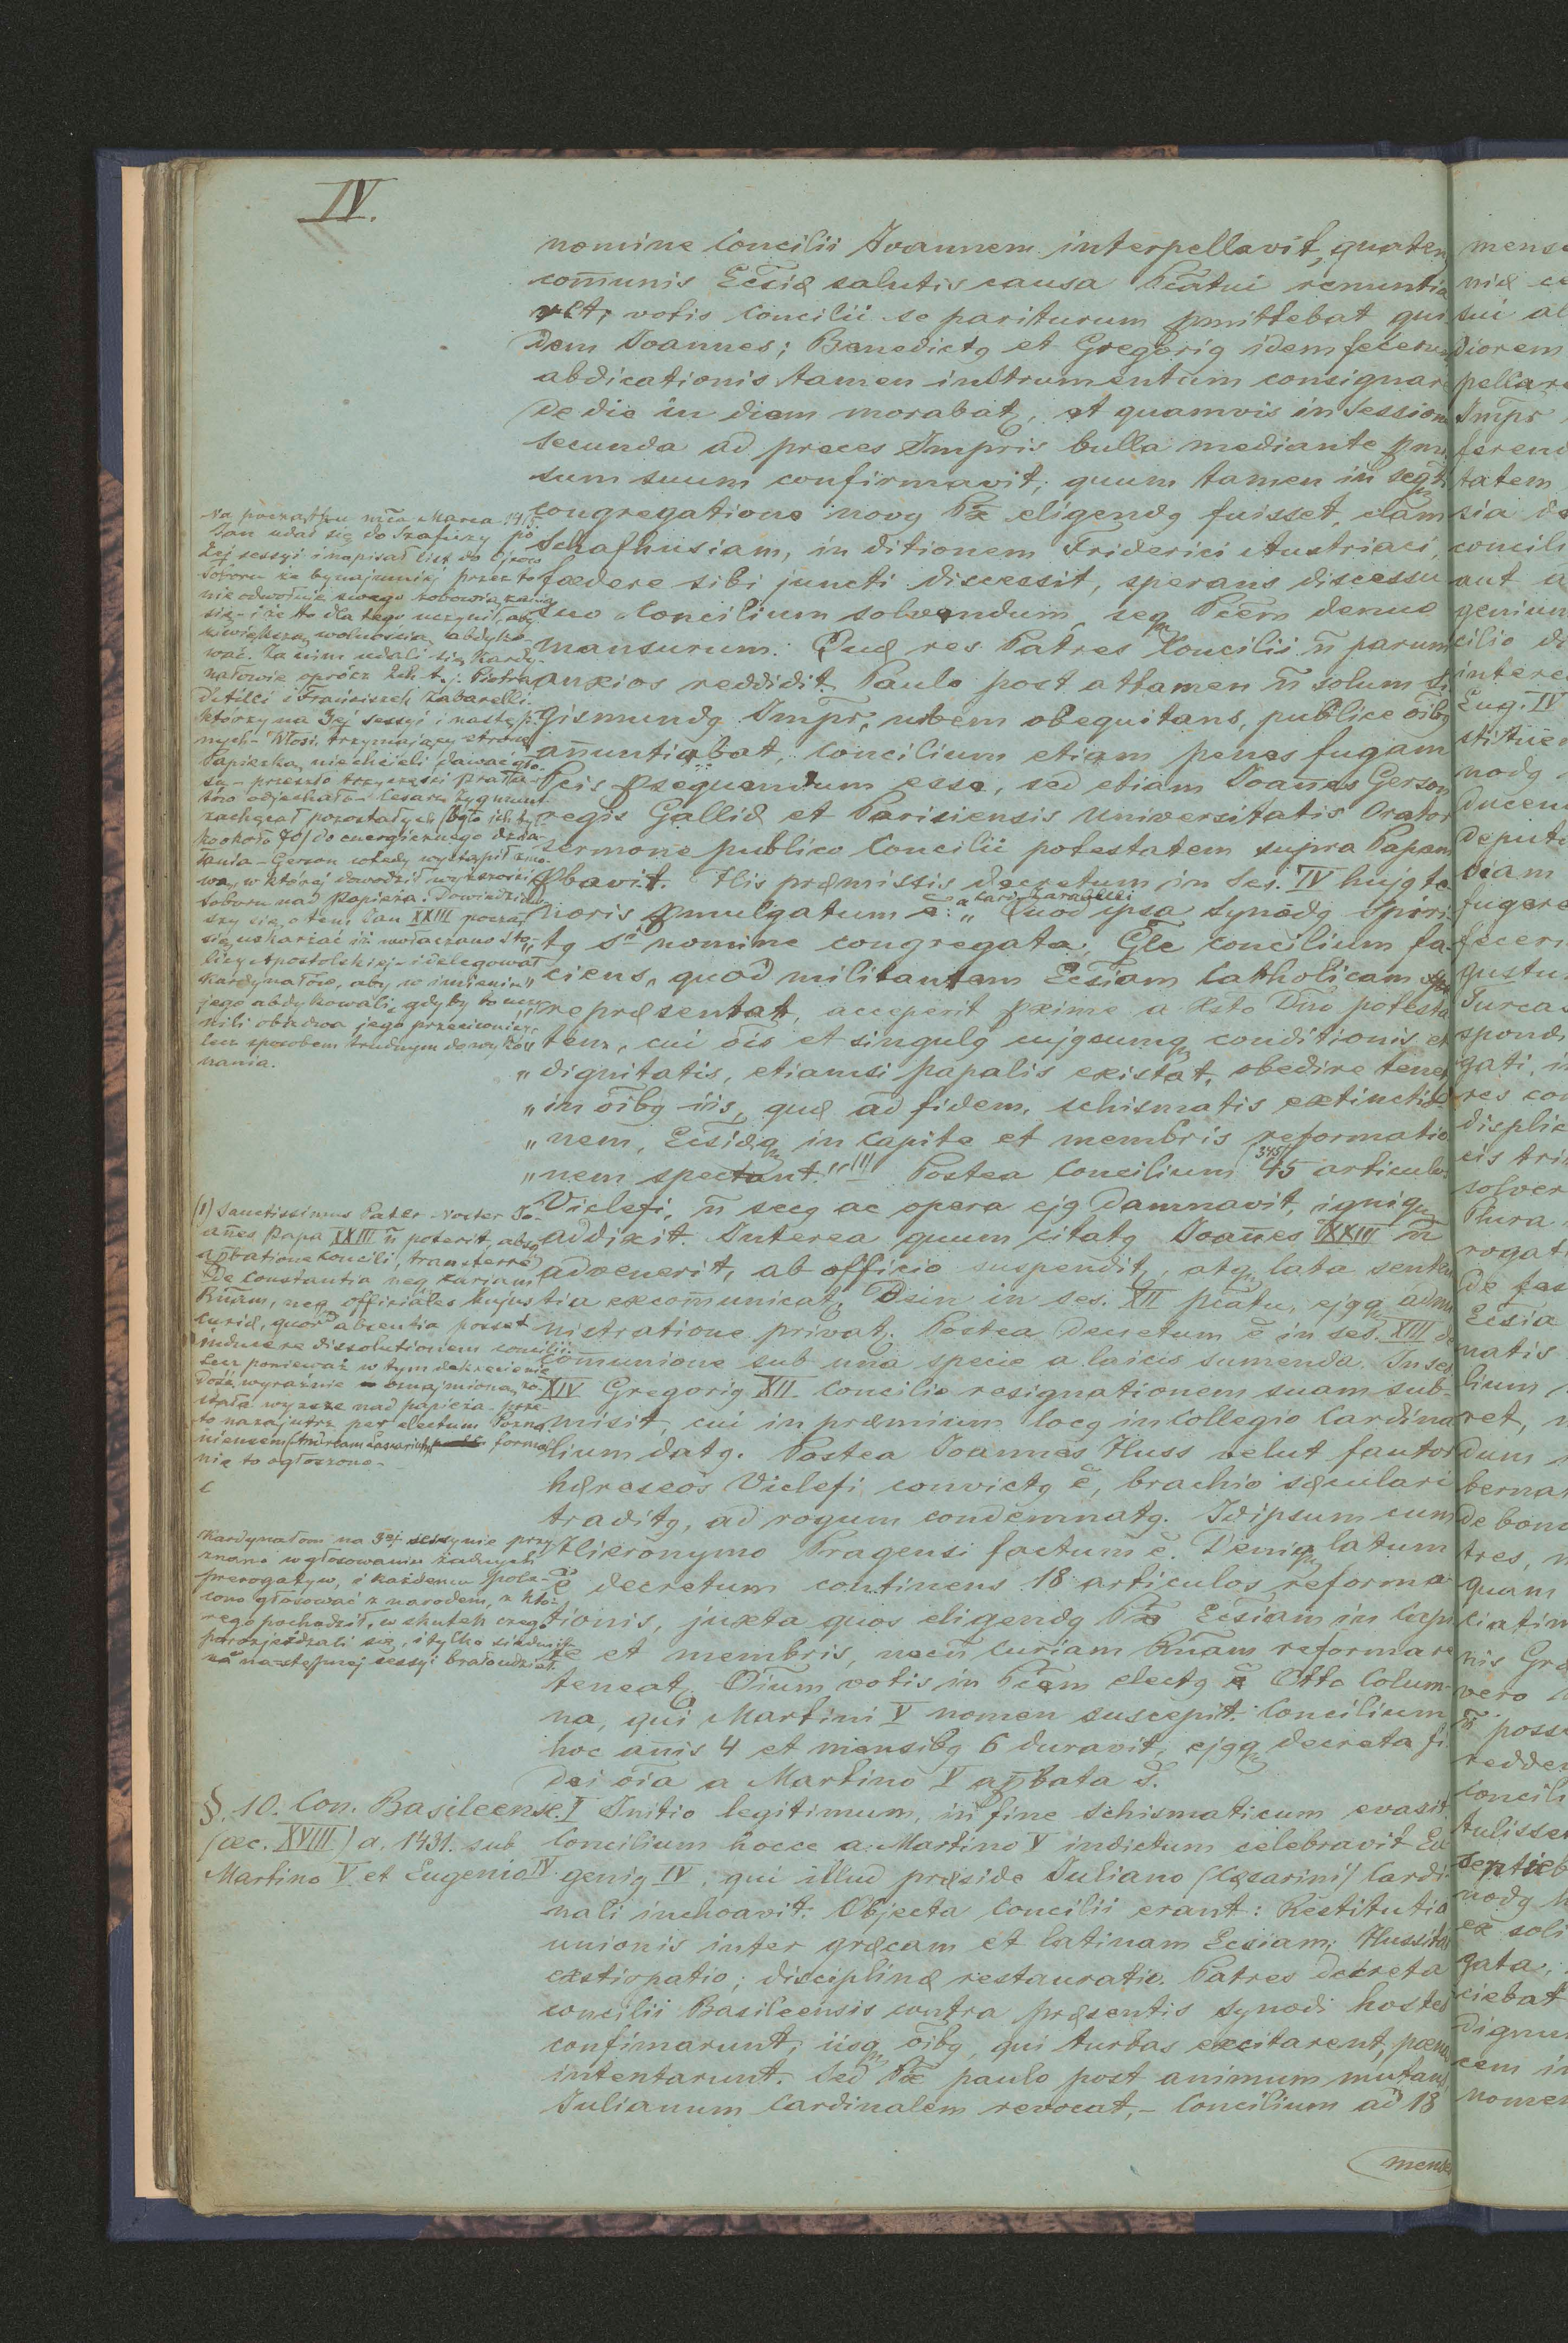 IV.
nomine Concilii Ioannem interpellavit, quaten
com̄unis Ecc̄iæ salutis causa P̄catui renuntia
ret; votis Concilii se pariturum pmittebat qui
dem Joannes; Benedictg et Gregorig idem fecerun
abdicationis tamen instrumentum consignare
de die in diem morabat, et quamvis in Session
secunda ad preces Impris bulla mediante pmi
sum suum confirmavit; quum tamen in seq̄ti
congregatione novg P̄x eligendg fuisset, clam
Schafhusiam, in ditionem Friderici Austriaci,
fœdere sibi juncti discessit, sperans discessu
suo Concilium solvendum, seq̨ P̄cem denuo
mansurum. Quæ res Patres Concilii n̄ parum
anxios reddidit. Paulo post attamen n̄ solum Si
gismundg Impr̄, urbem obequitans, publice oībg
an̄untiabat, Concilium etiam penes fugam
P̄cis psequendum esse, sed etiam Joan̄es Gerson
regis Galliæ et Parisiensis Universitatis Orator
sermone publico Concilii potestatem supra Papam
pbavit. His præmissis decretum in Ses. IV hujg te
noris pmulgatum ē: „Quod ipsa Synodg Spiri-
„tg Sti nomine congregata Gl̄e concilium fa-
„ciens, quod militantem Ecc̄iam Catholicam
„repræsentat, acceperit pxime a Xsto Dn̄o potesta
„tem, cui ōis et singulg cujgcumq̨ conditionis et
„dignitatis, etiamsi papalis existat, obedire tenet
„in oībg iis, quæ ad fidem, schismatis extinctio
„nem, Ecc̄iæq̨ in capite et membris reformatio
„nem spectant.“ (1) Postea Concilium 45 (345) articulos
Viclefi, n̄ secg ac opera ejg damnavit, igniq̨
addixit. Interea quum citatg Joan̄es XXIII n̄
advenerit, ab officio suspendit, atq̨ lata senten
tia excom̄unicat. Dein in ses. XII p̄catu, ejgq̨ admi
nistratione privat. Postea decretum ē in ses. XIII de
com̄unione sub una specie a laicis sumenda. In ses
XIV Gregorig XII Concilio resignationem suam sub-
misit, cui in præmium locg in Collegio Cardina
lium datg. Postea Joannes Huss velut fautor
hæreseos Viclefi convictg ē, brachio sæculari
traditg, ad rogum condemnatg. Idipsum cum
Hieronymo Pragensi factum ē. Deniq̨ latum
ē decretum continens 18 articulos reforma-
tionis, juxta quos eligendg P̄x Ecc̄iam in Capi
te et membris, necn̄ Curiam Rn̄am reformare
teneat. Ōium votis in P̄cem electg ē Otto Colum-
na, qui Martini V nomen suscepit. Concilium
hoc an̄is 4 et mensibg 6 duravit, ejgq̨ decreta fi
dei oīa a Martino V apbata s̄.
I Initio legitimum, in fine schismaticum evasit
Concilium hocce a Martino V indictum celebravit Eu
genig IV, qui illud præside Juliano (Cæsarini) Cardi-
nali inchoavit. Objecta Concilii erant: Restitutio
unionis inter græcam et latinam Ecc̄iam; Hussita
exstirpatio; disciplinæ restauratio. Patres decreta
concilii Basileensis contra præsentis synodi hostes
confirmarunt, iisq̨ oībg, qui turbas excitarent, pœna
intentarunt. Sed P̄x paulo post animum mutans
Julianum Cardinalem revocat, – Concilium ad 18
mense
Na początku m-ca Marca 1415
Jan udał się do Szafuzy po
2ej sessyi i napisał list do Ojców
Soboru że bynajmniej przez to
nie odwołuje swego zobowiązania
się – i że to dla tego uczynił, aby
z większą wolnością abdyko-
wać. Za nim udali się Kardy-
nałowie oprócz 2ch t. j. Piotra
d'Aïlli i Franciszek Zabarelli.
którzy na 3ej sessyi i następ-
nych – Włosi, trzymający stronę
Papieża, nie chcieli dawać gło-
su – przeszło trzy części Prała-
tów odjechało – Cesarz Zygmunt
zachęcał pozostałych (było ich tyl-
ko około 70) do energicznego dzia-
łania – Gerson wtedy wystąpił z mo-
wą, w której dowodził wyższości
Soboru nad Papieża. Dowiedziaw-
szy się o tem, Jan XXIII począł
się uskarżać iż uwłaczano Sto-
licy Apostolskiej – i delegował
Kardynałów, aby w imieniu
jego abdykowali, gdyby to uczy-
nili obadwa jego przeciwnicy,
lecz sposobem trudnym do wyko-
nania.
(1) Sanctissimus Pater Noster Jo-
an̄es Papa XXIII n̄ poterit absq̨
apbatione Concilii, transferre
de Constantia neq̨ Curiam
Rn̄am, neq̨ officiales hujus
curiæ, quor̄ absentia posset
inducere dissolutionem concilii.
Lecz ponieważ w tym dekrecie nie
dość wyraźnie oznajmiona zo-
stała wyższość nad papieża – prze-
to nazajutrz per electum Pozna-
niensem formal
nie to ogłoszono –
Kardynałom na 3ej sessyi nie przy
znano w głosowaniu żadnych
prerogatyw, i każdemu pole-
cono głosować z narodem, z któ-
rego pochodził, w skutek czego
porozjeżdżali się, i tylko siedmiu
na następnej sessyi brało udział.
§. 10. Con. Basileense.
(œc. XVIII) a. 1431. sub
Martino V et Eugenio IV.